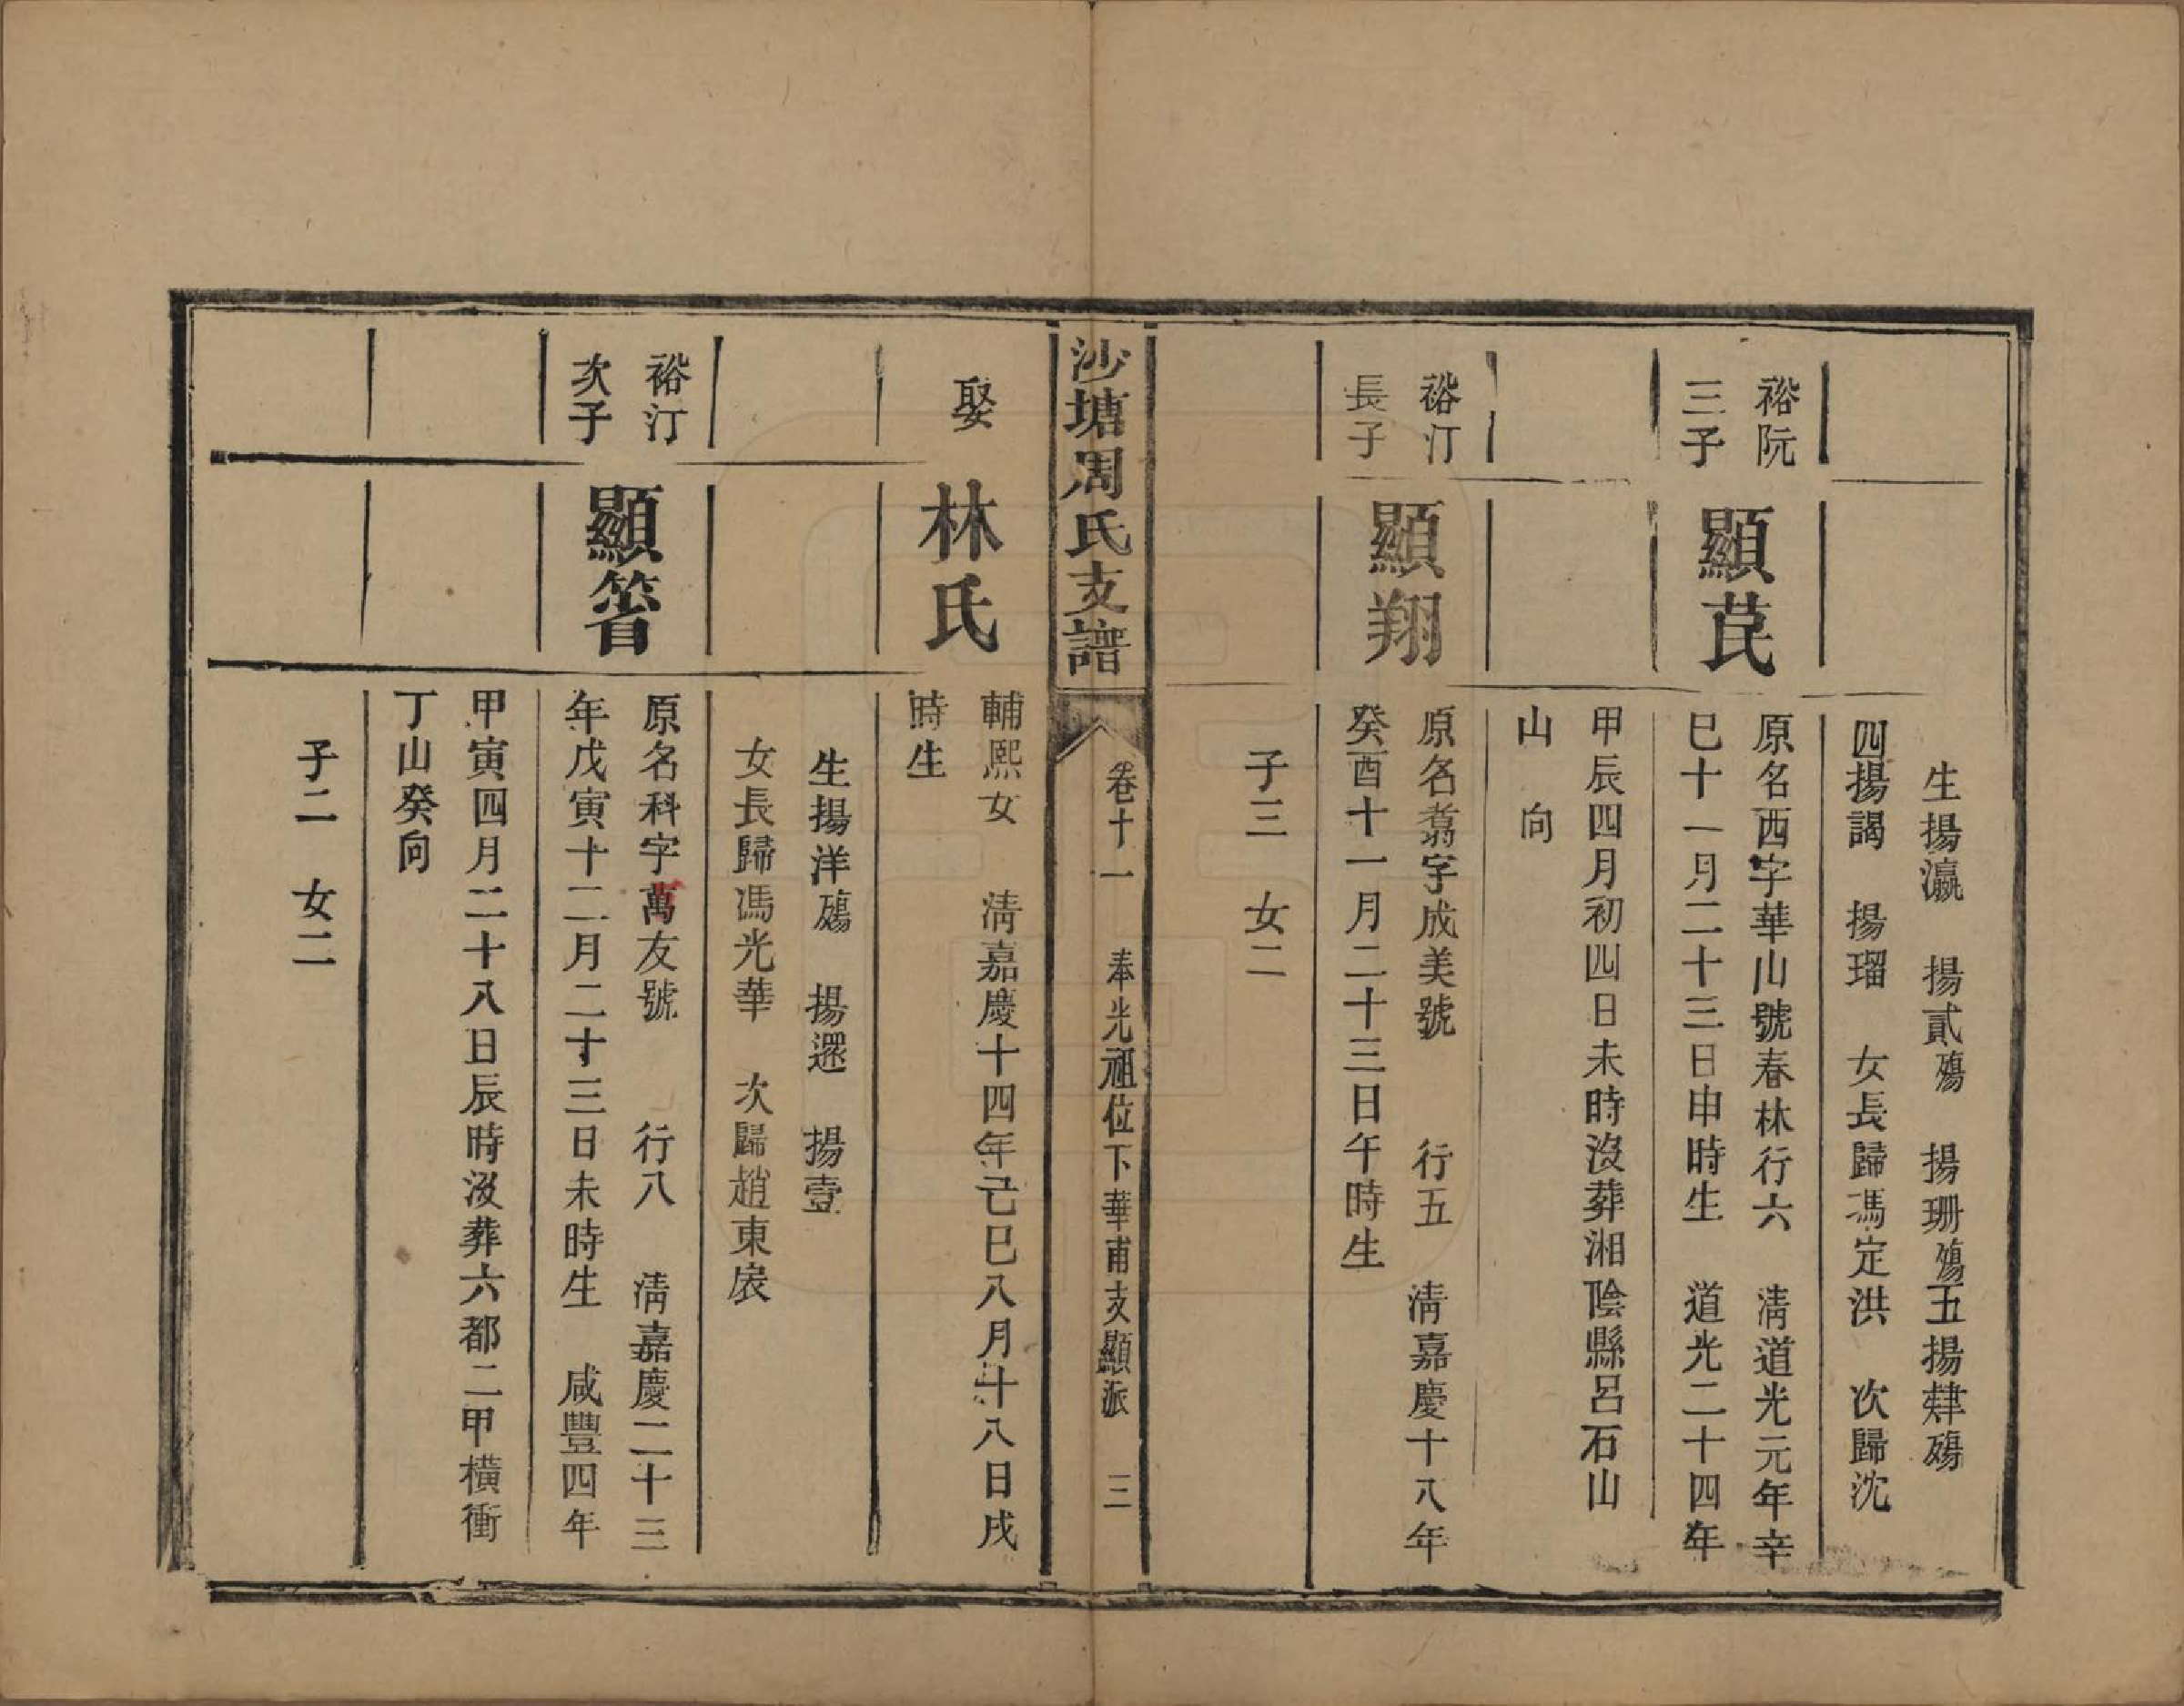 生揚瀛　揚貳殤　揚珊殤五揚肄殤
四揚謁　揚瑠　女長歸馮定洪　次歸沈
裕阮
三子
顯苠
原名西字華山號春林行六　清道光元年辛
巳十一月二十三日申時生　道光二十四年
甲辰四月初四日未時沒葬湘陰縣呂石山
山　向
裕汀
長子
顯翔
原名翥字成美號　　行五　清嘉慶十八年
癸酉十一月二十三日午時生
子三　女二
沙塘周氏支譜
卷十一　奉光祖位下華甫支顯派　三
娶
林氏
輔熙女　清嘉慶十四年己巳八月十八日戌
時生
生揚洋殤　揚選　揚壹
女長歸馮光華　次歸趙東扆
裕汀
次子
顯箵
原名科字萬友號　　行八　清嘉慶二十三
年戊寅十二月二十三日未時生　咸豐四年
甲寅四月二十八日辰時沒葬六都二甲橫衝
丁山癸向
子二　女二